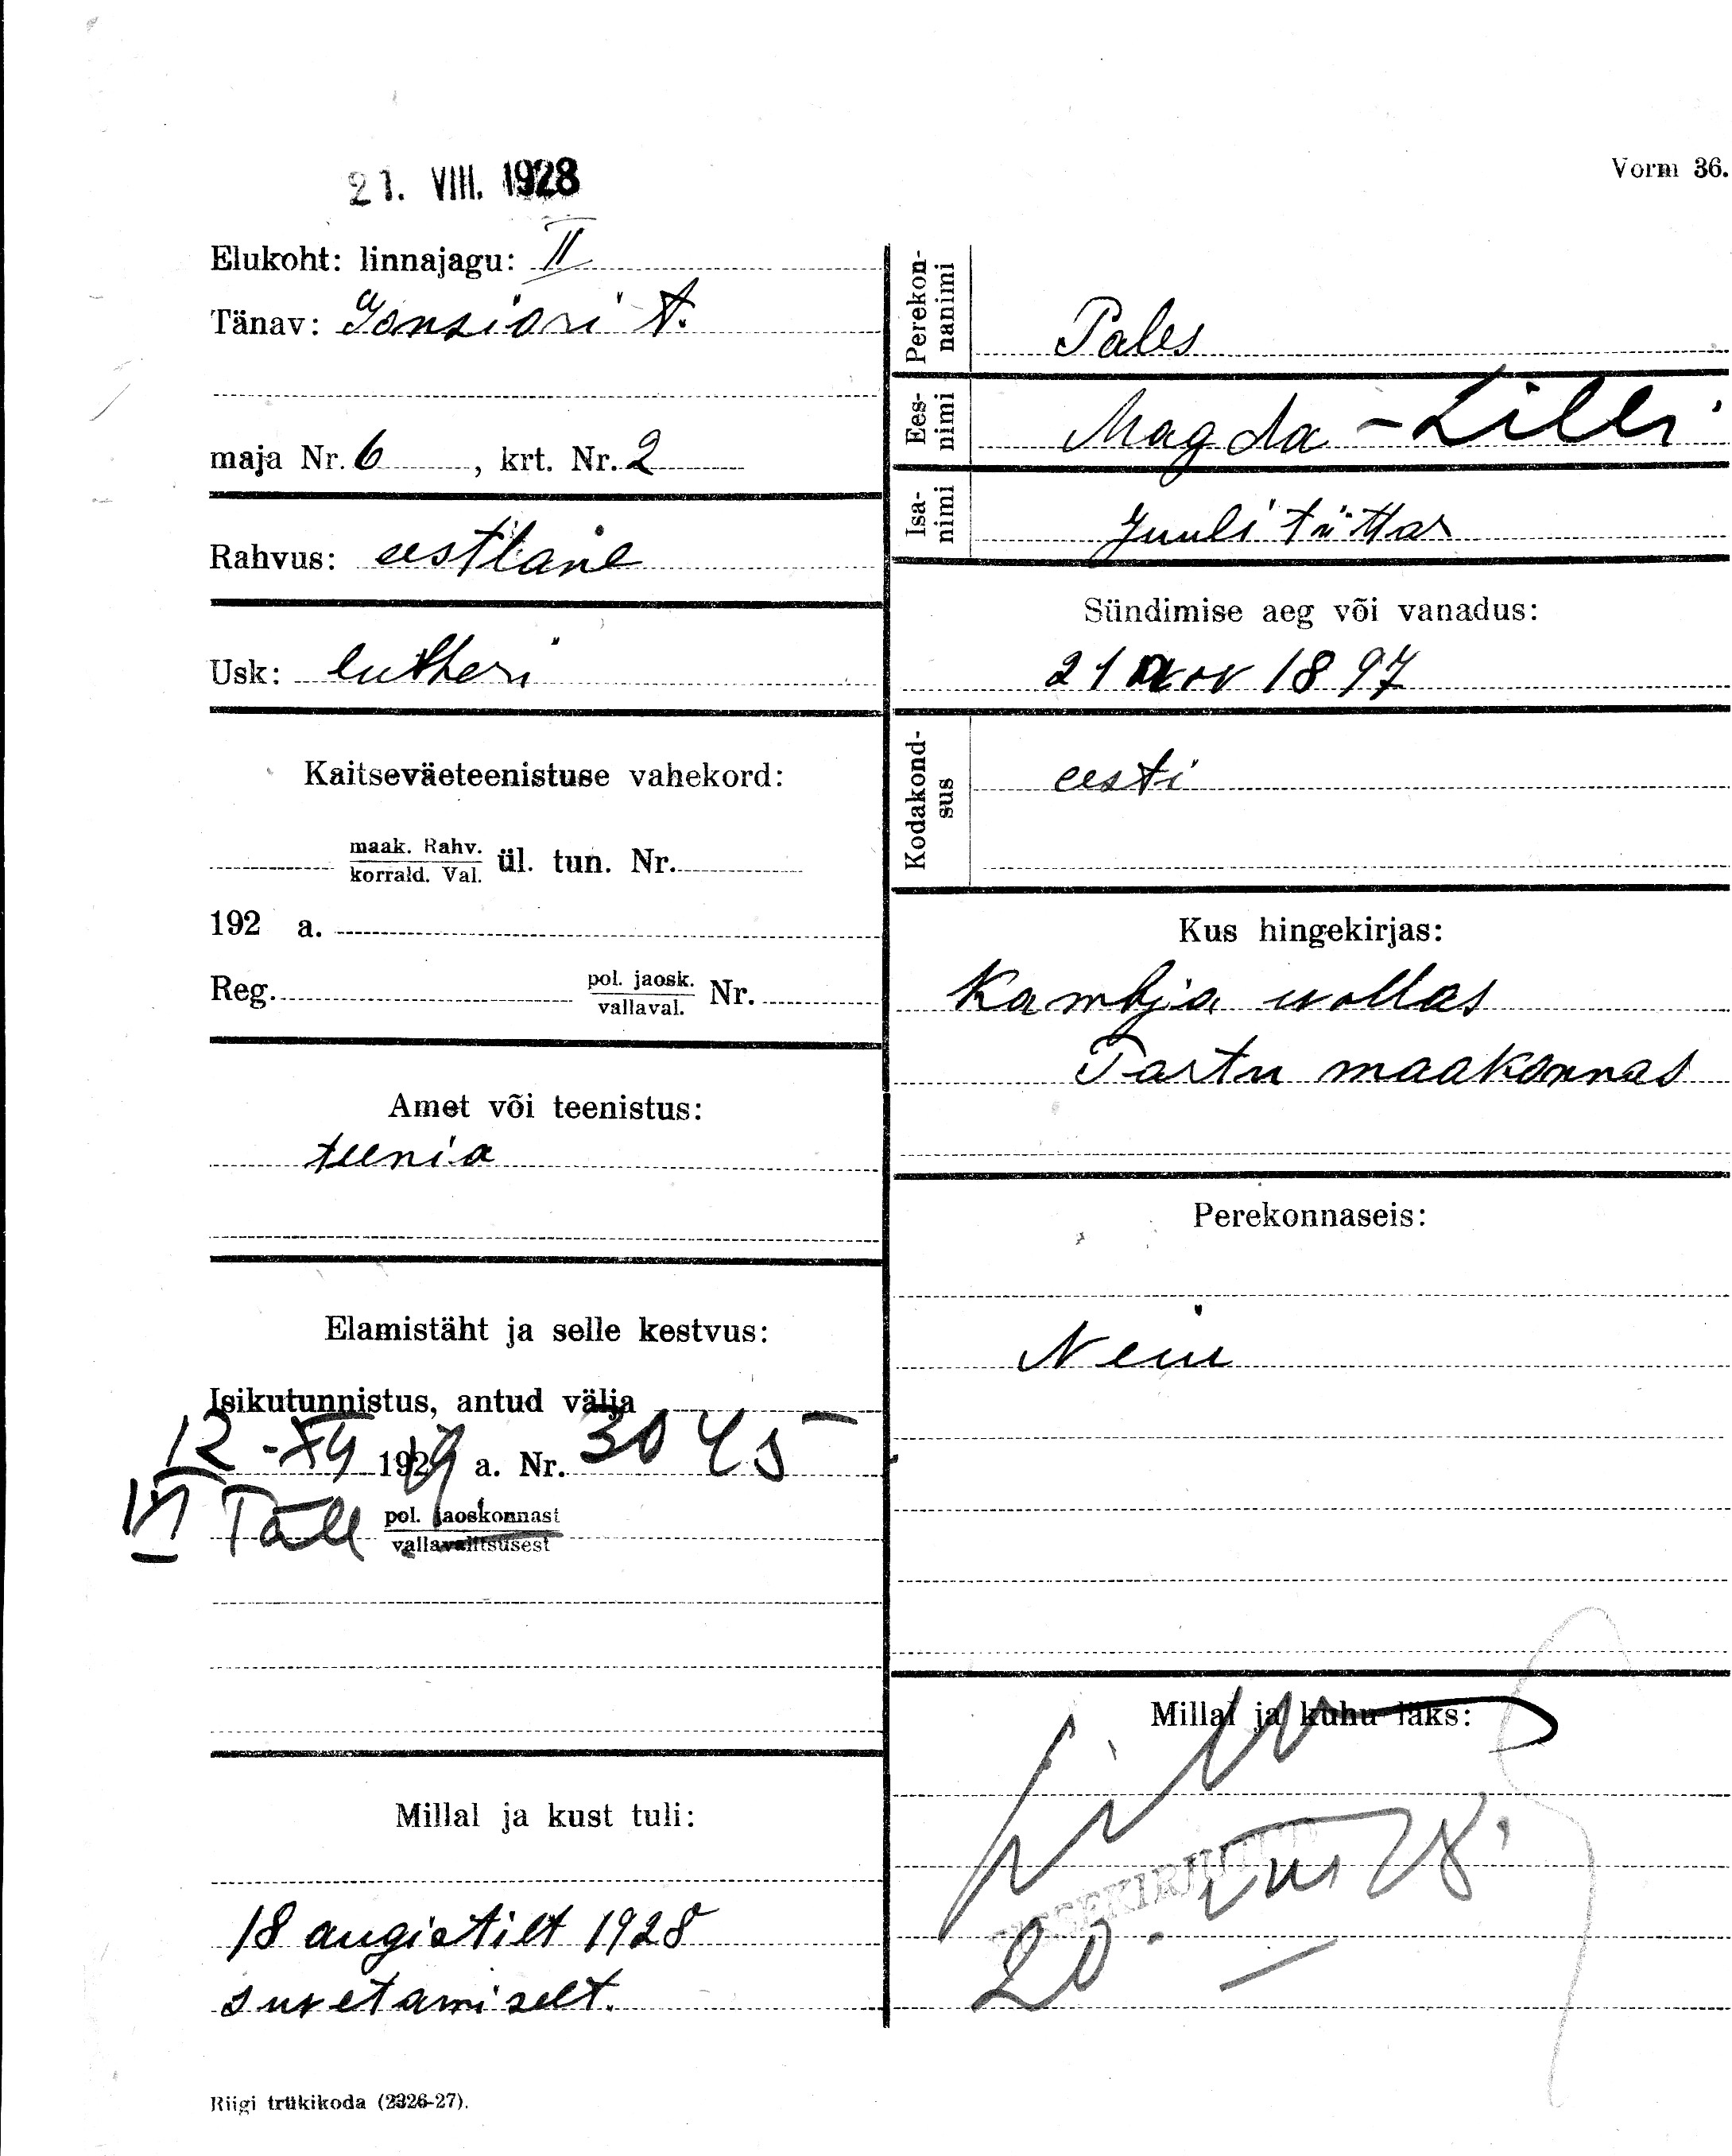 21. VIII. 1928
Vorm 36.
Elukoht: linnajagu: II
Tänav: Gonsiori t.
maja Nr. 6, krt. Nr. 2
Rahvus: eestlane
Usk: lutheri
Kaitseväeteenistuse vahekord:
maak. Rahv.
korrald. Val. ül. tun. Nr.
192 a.
Reg. pol. jaosk.
vallaval. Nr.
Amet või teenistus:
teenia
Elamistäht ja selle kestvus:
Isikutunnistus, antud välja
12-XII 1929 a. Nr. 3045
VI Tall pol. jaoskonnast
vallavalitsusest
Millal ja kust tuli:
18 augistilt 1928
suvetamiselt.
Riigi trükikoda (2326-27).
Perekon-
nanimi
Pales
Ees-
nimi
Magda - Lilli
Isa-
nimi
Juuli tüttar
Sündimise aeg või vanadus:
21 nov 1897
Kodakond-
sus
eesti
Kus hingekirjas:
Kambja wollas
Tartu maakonnas
Perekonnaseis:
Neiu
Millal ja kuhu läks:
SISSEKIRJUTUD
20. VIII 28.